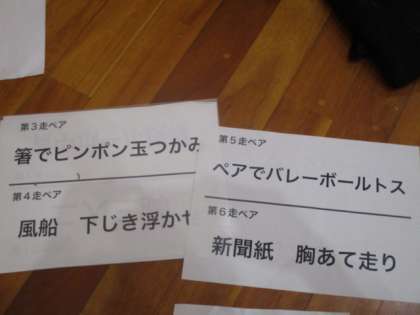 第3走ペア
箸でピンポン玉つかみ
第4走ペア
風船　下じき浮かせ
第5走ペア
ペアでバレーボールトス
第6走ペア
新聞紙　胸あて走り